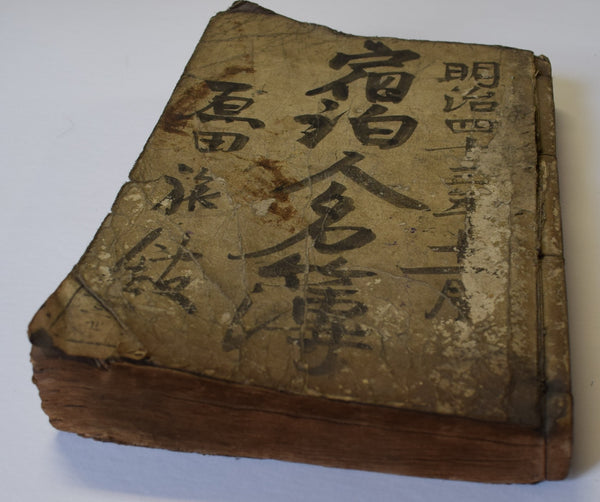 明治四十三年十二月
宿泊人名簿
原田旅舘